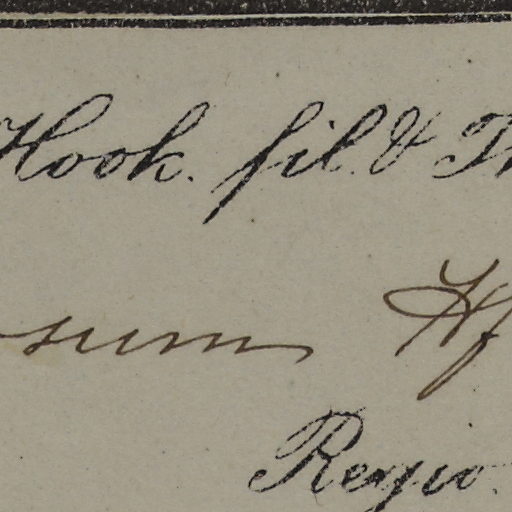 Hook. fil. & Th
sum Hf
Regio.